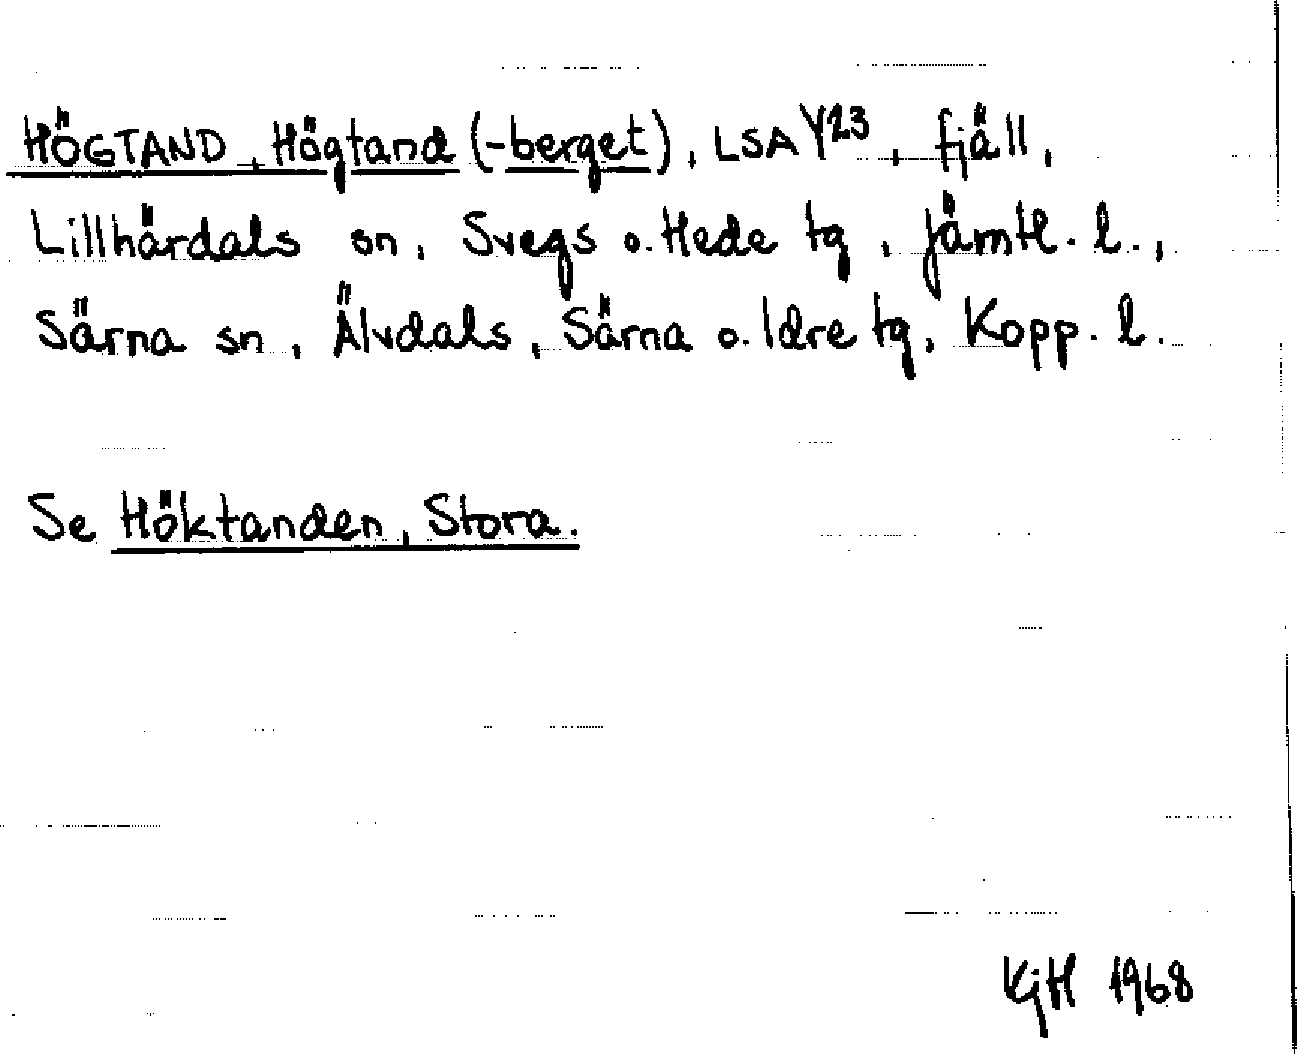 HÖGTAND, Högtand (-berget), LSA Y23, fjäll,
Lillhärdals sn, Svegs o. Hede tg, Jämtl. l.,
Särna sn, Älvdals, Särna o. Idre tg, Kopp. l.
Se Höktanden, Stora.
KjH 1968